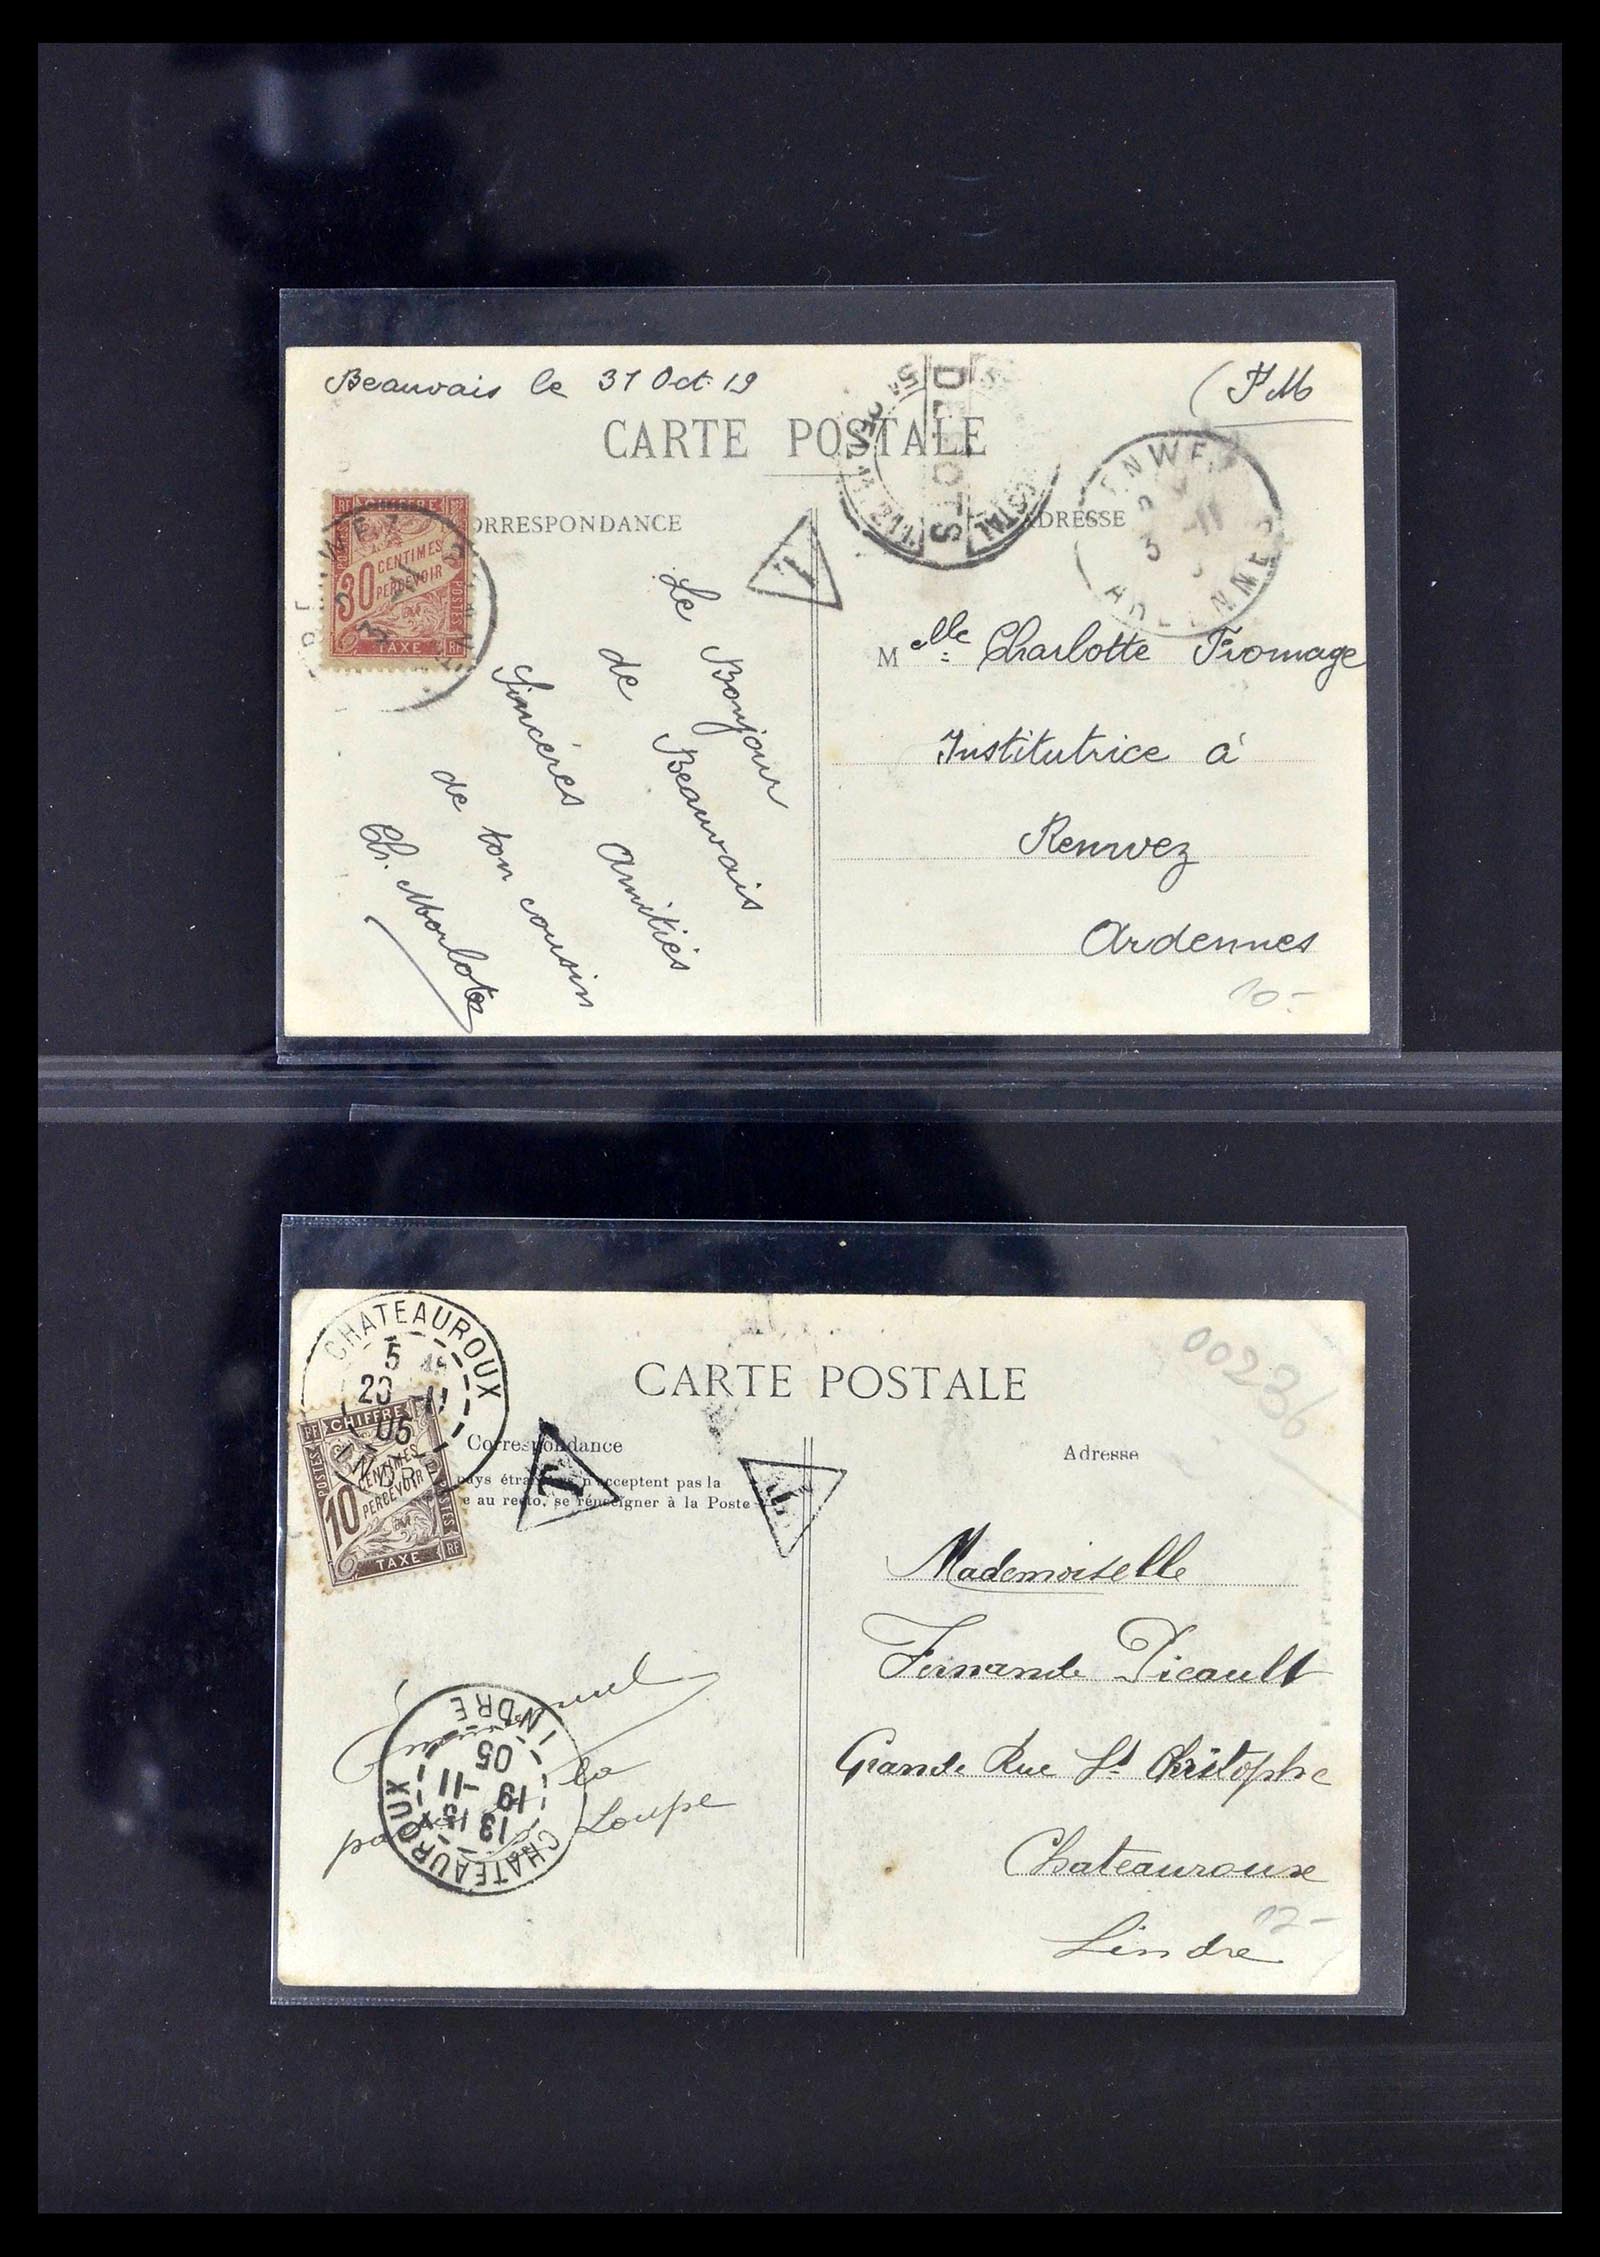 Beauvais le 31 Oct. 19
(FM
CARTE POSTALE
CORRESPONDANCE
ADRESSE
RF CHIFFRE RF
POSTES
30 CENTIMES
PERCEVOIR
TAXE RF
T
DÉPOTS
POSTAL
ENWE
3 -11
ARDENNES
Le Bonjour
de Beauvais
Sincères Amitiés
de ton cousin
Ch. Morlot
Melle Charlotte Fromage
Institutrice à
Renwez
Ardennes
10-
CHATEAUROUX
5
20 -11
05
INDRE
00236
CARTE POSTALE
RF CHIFFRE
POSTES
10 CENTIMES
PERCEVOIR
TAXE RF
Correspondance
Adresse
pays étrangers n'acceptent pas la
e au recto, se renseigner à la Poste
T
T
Mademoiselle
Fernande Picault
Grande Rue St Christophe
Chateauroux
Lindre
12-
la
Loupe
CHATEAUROUX
13 15
19 -11
05
INDRE